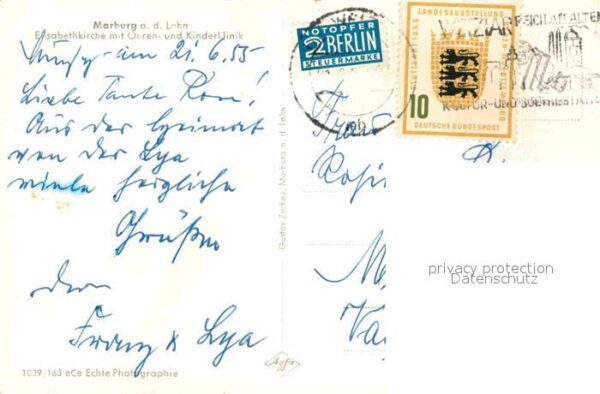 Marburg a. d. Lahn
Elisabethkirche mit Ohren- und Kinderklinik
am 21.6.55
Liebe Tante Rosa!
Aus der Heimat
von der Lya
viele herzliche
Grüße
Franz & Lya
1039/163 eCe Echte Photographie
Gustav Zeckey, Marburg a. d. Lahn
Agfa
NOTOPFER
2 BERLIN
STEUERMARKE
LANDESAUSSTELLUNG
10
DEUTSCHE BUNDESPOST
WETZLAR REICH AN ALTEN
KULTUR- UND
Frau
privacy protection
Datenschutz